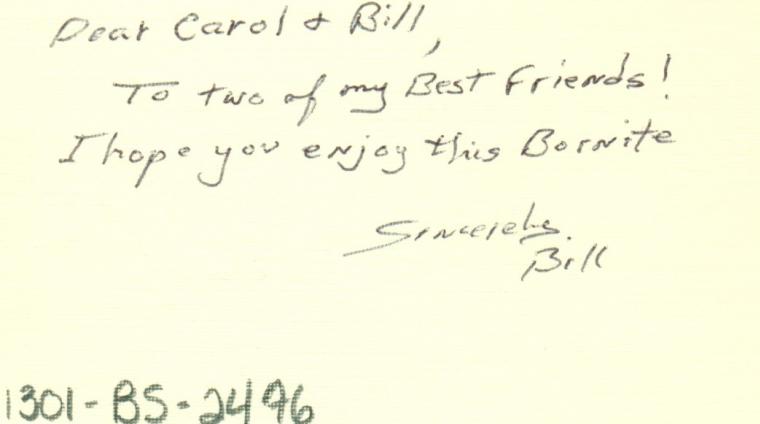 Dear Carol & Bill,
To two of my Best Friends!
I hope you enjoy this Bornite
Sincerely.
Bill
1301-BS-2496